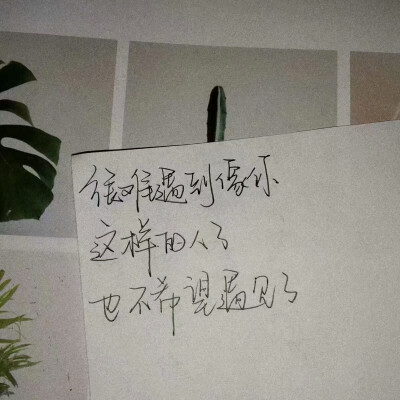 很难遇到像你
这样的人了
也不希望遇见了